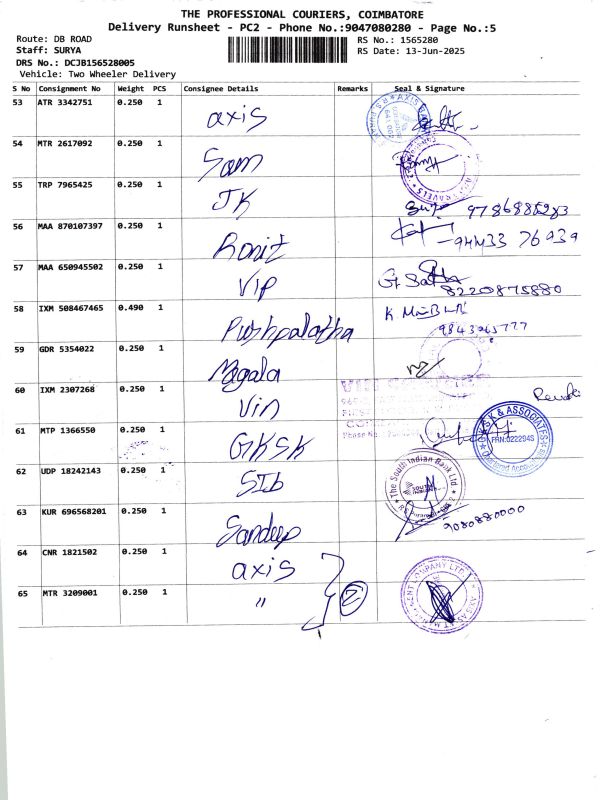 THE PROFESSIONAL COURIERS, COIMBATORE
Delivery Runsheet - PC2 - Phone No.:9047080280 - Page No.:5
Route: DB ROAD
RS No.: 1565280
Staff: SURYA
RS Date: 13-Jun-2025
DRS No.: DCJB156528005
Vehicle: Two Wheeler Delivery
S No Consignment No Weight PCS Consignee Details Remarks Seal & Signature
53 ATR 3342751 0.250 1 axis
54 MTR 2617092 0.250 1 Sam
55 TRP 7965425 0.250 1 JK
56 MAA 870107397 0.250 1 Ronit
57 MAA 650945502 0.250 1 VIP 8220875880
58 IXM 508467465 0.490 1 Pushpalatha
59 GDR 5354022 0.250 1 Megala
60 IXM 2307268 0.250 1 Vin
61 MTP 1366550 0.250 1 GKSK GKSK & ASSOCIATES FRN:022294S Chartered Accountants
62 UDP 18242143 0.250 1 SIb The South Indian Bank Ltd.
63 KUR 696568201 0.250 1 Sandeep 9080880000
64 CNR 1821502 0.250 1 axis
65 MTR 3209001 0.250 1 " 2